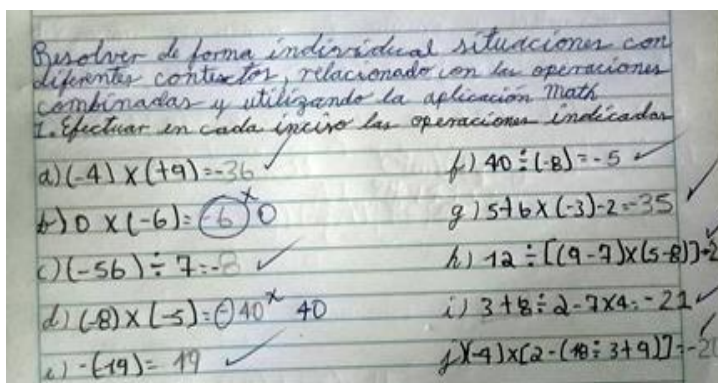 Resolver de forma individual situaciones con
diferentes contextos, relacionado con las operaciones
combinadas y utilizando la aplicación Math
1. Efectuar en cada inciso las operaciones indicadas
a) (-4) x (+9) = -36 ✓
b) 0 x (-6) = -6 x 0
c) (-56) ÷ 7 = -8 ✓
d) (-8) x (-5) = -40 x 40
e) -(-19) = 19 ✓
f) 40 ÷ (-8) = -5 ✓
g) 5+6x(-3)-2=-35 ✓
h) 12 ÷ [(9-7)x(5-8)] = -2 ✓
i) 3+8÷2-7x4=-21 ✓
j) (-4)x[2-(18÷3+9)]=-2